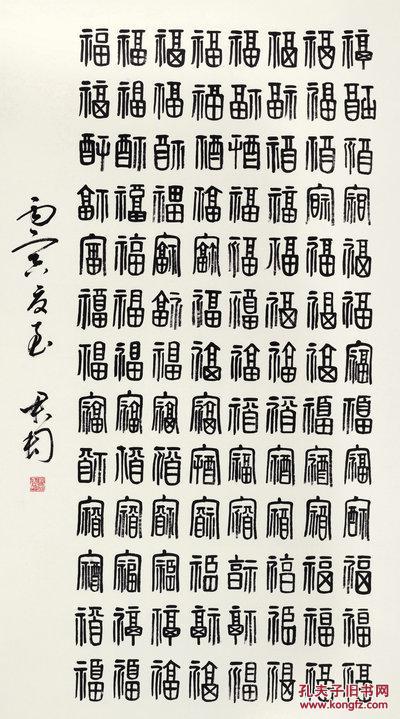 福福福福福福福福福福福福福
福福福福福福福福福福福福福
福福福福福福福福福福福福福
福福福福福福福福福福福福福
福福福福福福福福福福福福福
福福福福福福福福福福福福福
福福福福福福福福福福福福福
福福福福福福福福福福福福福
丙寅夏至 君匋
孔夫子旧书网
kongfz.com